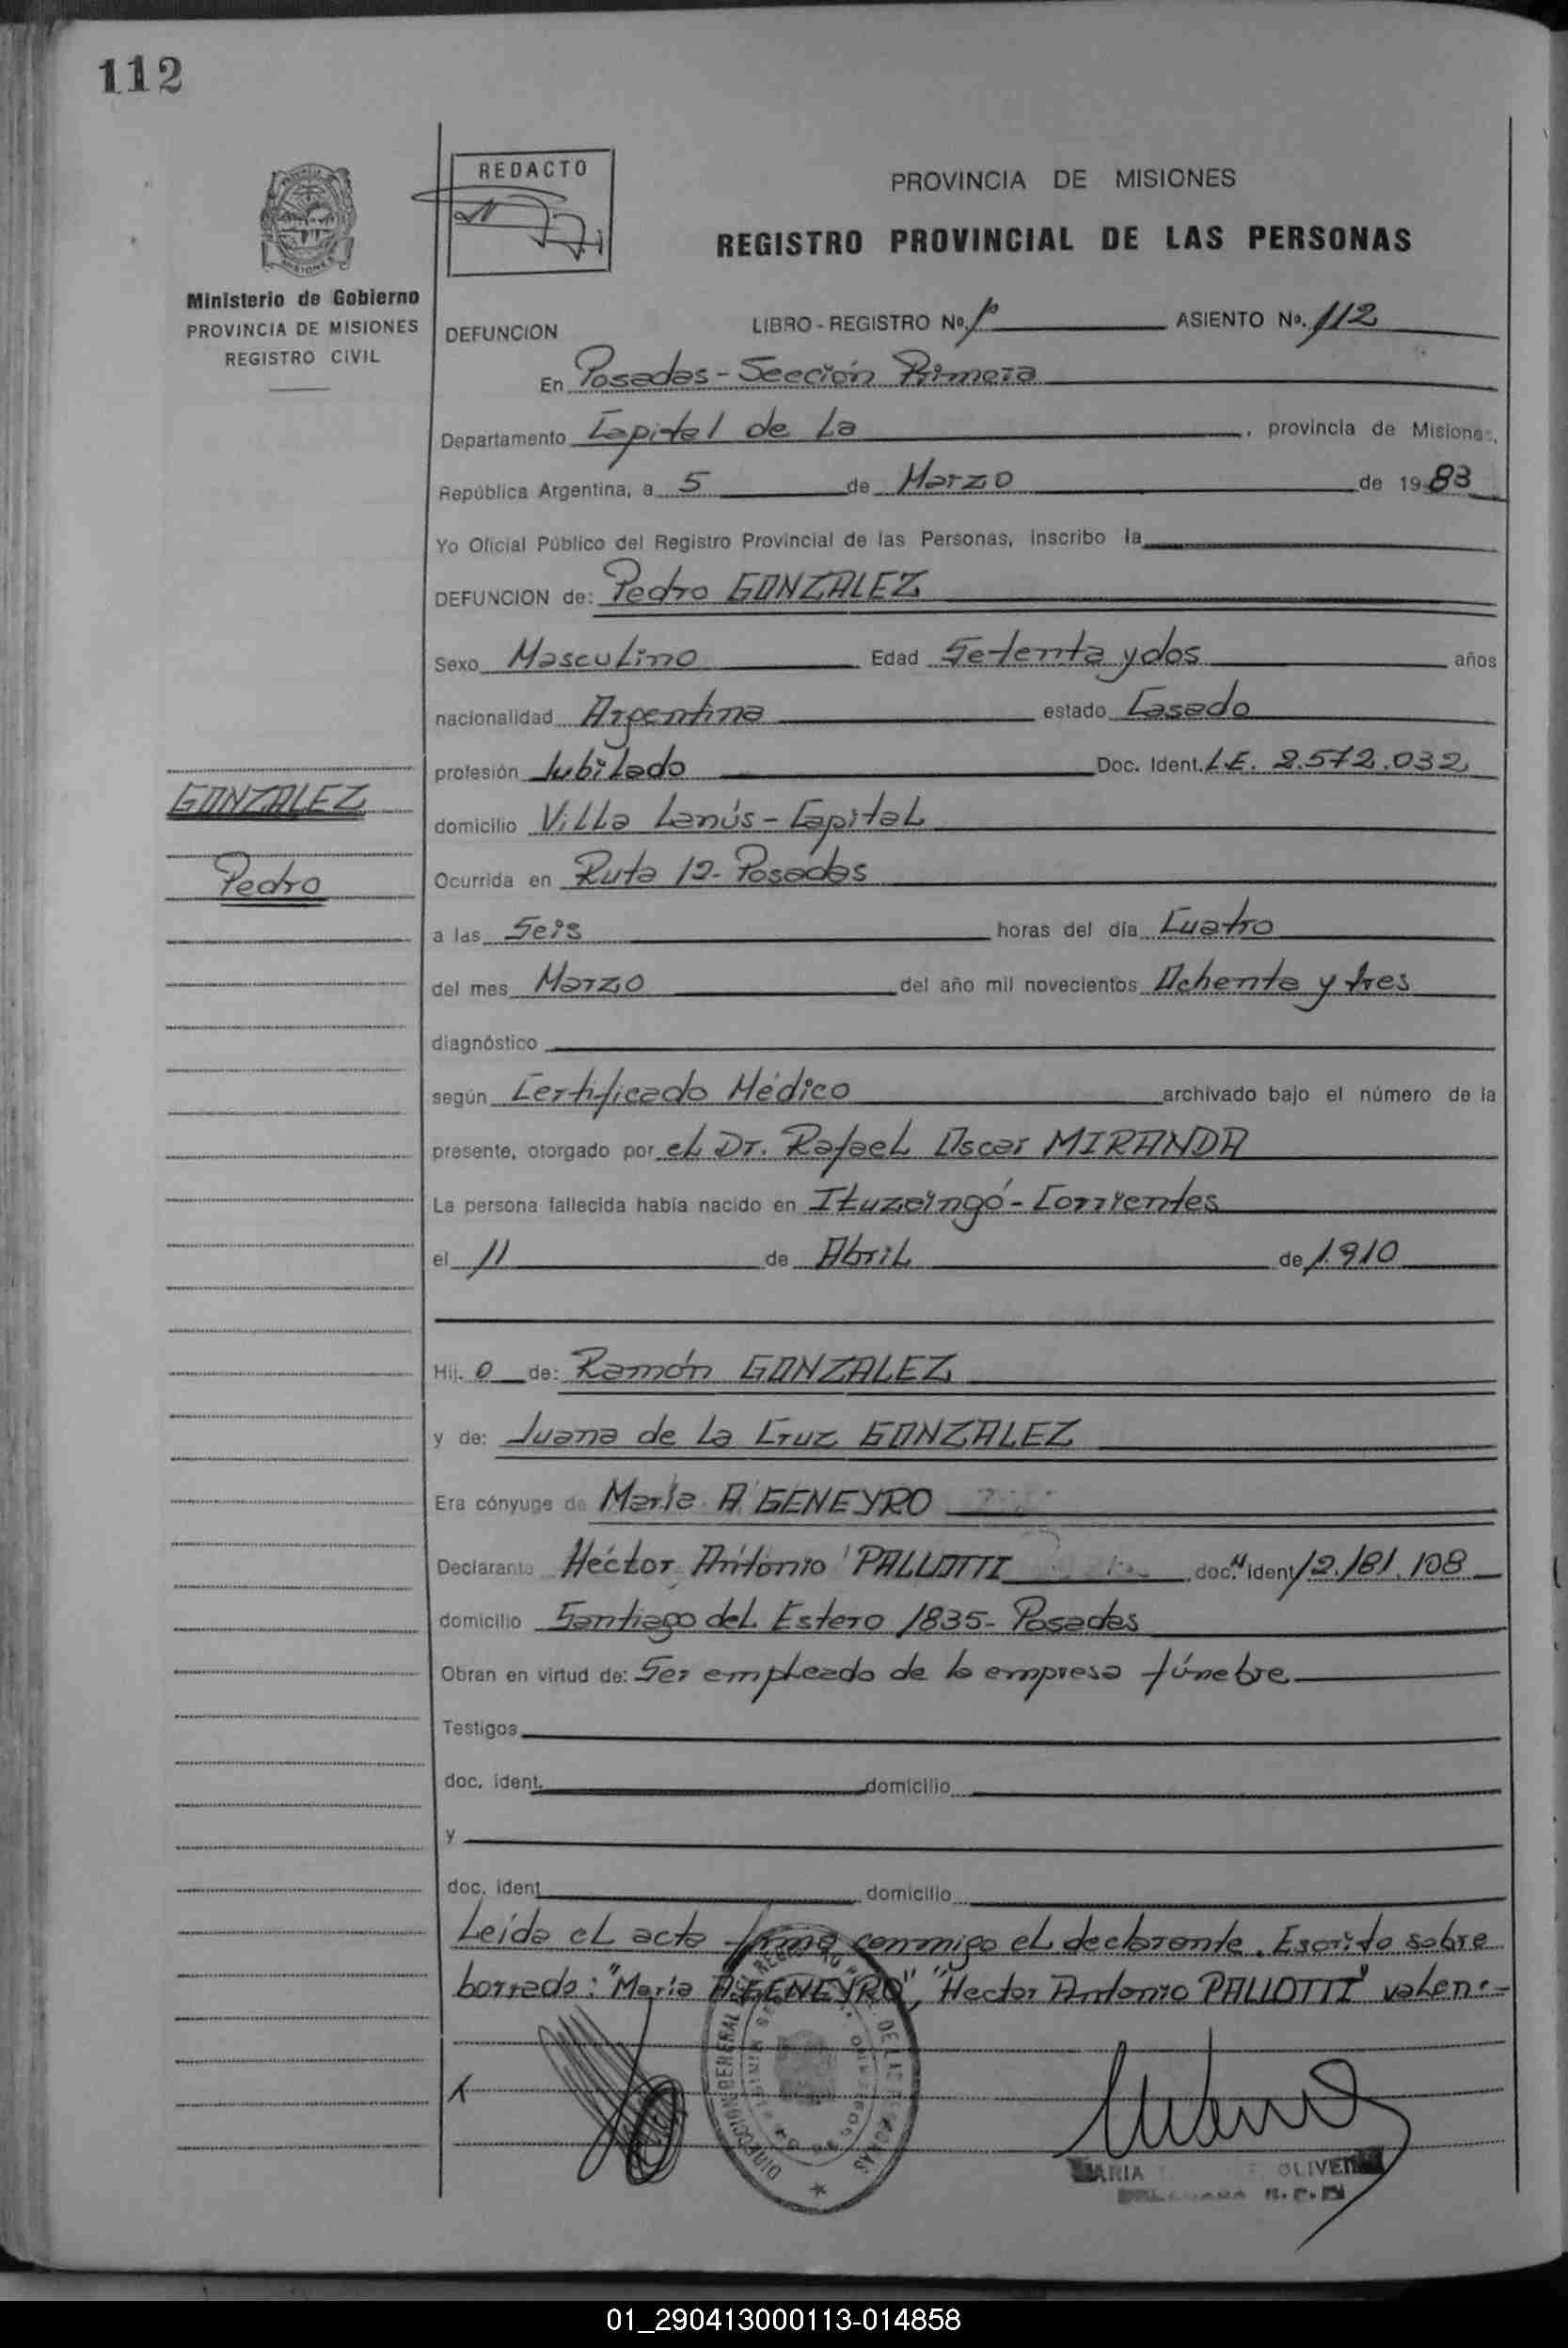 112
REDACTO
PROVINCIA DE MISIONES
REGISTRO PROVINCIAL DE LAS PERSONAS
Ministerio de Gobierno
PROVINCIA DE MISIONES
REGISTRO CIVIL
DEFUNCION LIBRO - REGISTRO Nº. 1º ASIENTO Nº. 112
En Posadas - Sección Primera
Departamento Capital de La , provincia de Misiones,
República Argentina, a 5 de Marzo de 1983
Yo Oficial Público del Registro Provincial de las Personas, inscribo la
DEFUNCION de: Pedro GONZALEZ
Sexo Masculino Edad Setenta y dos años
nacionalidad Argentina estado Casado
profesión Jubilado Doc. Ident. L.E. 2.572.032
GONZALEZ
domicilio Villa Lanús - Capital
Pedro
Ocurrida en Ruta 12 - Posadas
a las Seis horas del día Cuatro
del mes Marzo del año mil novecientos Ochenta y tres
diagnóstico
según Certificado Médico archivado bajo el número de la
presente, otorgado por el Dr. Rafael Oscar MIRANDA
La persona fallecida había nacido en Ituzaingó - Corrientes
el 11 de Abril de 1.910
Hij. o de: Ramón GONZALEZ
y de: Juana de La Cruz GONZALEZ
Era cónyuge de María A. GENEYRO
Declarante Héctor Antonio PALLOTTI doc. ident 12.181.108
domicilio Santiago del Estero 1835 - Posadas
Obran en virtud de: Ser empleado de la empresa fúnebre
Testigos
doc. ident. domicilio
y
doc. ident domicilio
Leída el acta firma conmigo el declarante. Escrito sobre
borrado: "María A. GENEYRO", "Hector Antonio PALLOTTI" valen.-
X
DIRECCION GENERAL DEL REGISTRO DE LAS PERSONAS
MARIA OLIVERA
01_290413000113-014858